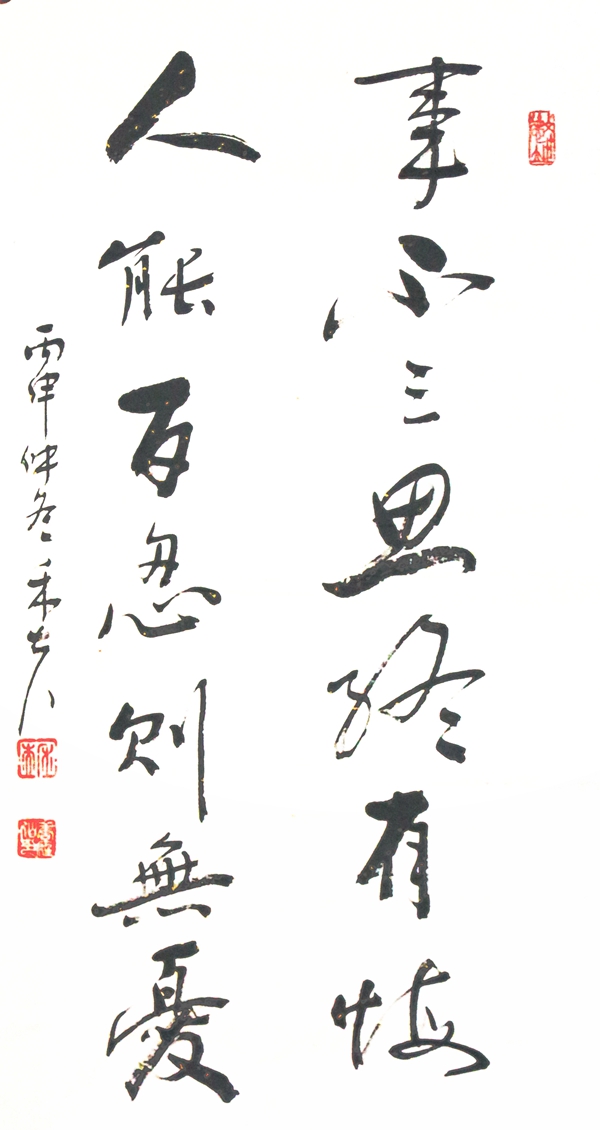 事不三思終有悔
人能百忍則無憂
丙申仲冬